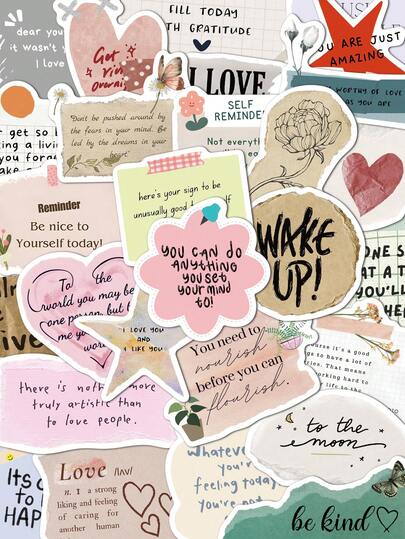 dear you
it wasn't y
I love
Get
FILL TODAY
TH GRATITUDE
YOU ARE JUST
AMAZING
WORTHY OF LOVE
AS YOU ARE
I LOVE
"Don't be pushed around by
the fears in your mind. Be
led by the dreams in your
heart"
SELF
REMINDER
Not everyth
get so b
ing a livi
you forge
ake
here's your sign to be
unusually good
Reminder
Be nice to
Yourself today!
YOU CAN DO
ANYTHING
YOU SET
YOUR MIND
TO!
WAKE
UP!
ONE S
AT A T
YOU'LL
To the
world you may be
one person but
I LOVE YOU
AND
I LIKE YOU
You need to
nourish
before you can
flourish.
ourse it's a good
gs to have a lot of
ries. That means
orking hard to
there is noth more
truly artistic than
to love people.
to the
moon
Love /lʌv/
n. 1 a strong
liking and feeling
of caring for
another human
Whateve
you'r
feeling today
You're not
Its o
to
HAP
be kind